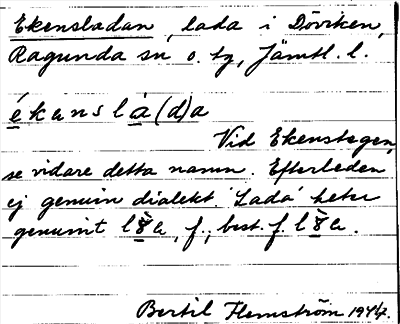 Ekensladan, lada i Döviken,
Ragunda sn o. tg, Jämtl. l.
ékanslà(d)a
Vid Ekenstegen,
se vidare detta namn. Efterleden
ej genuin dialekt. 'Lada' heter
genuint l a, f., best. f. l a.
Bertil Flemström 1944.